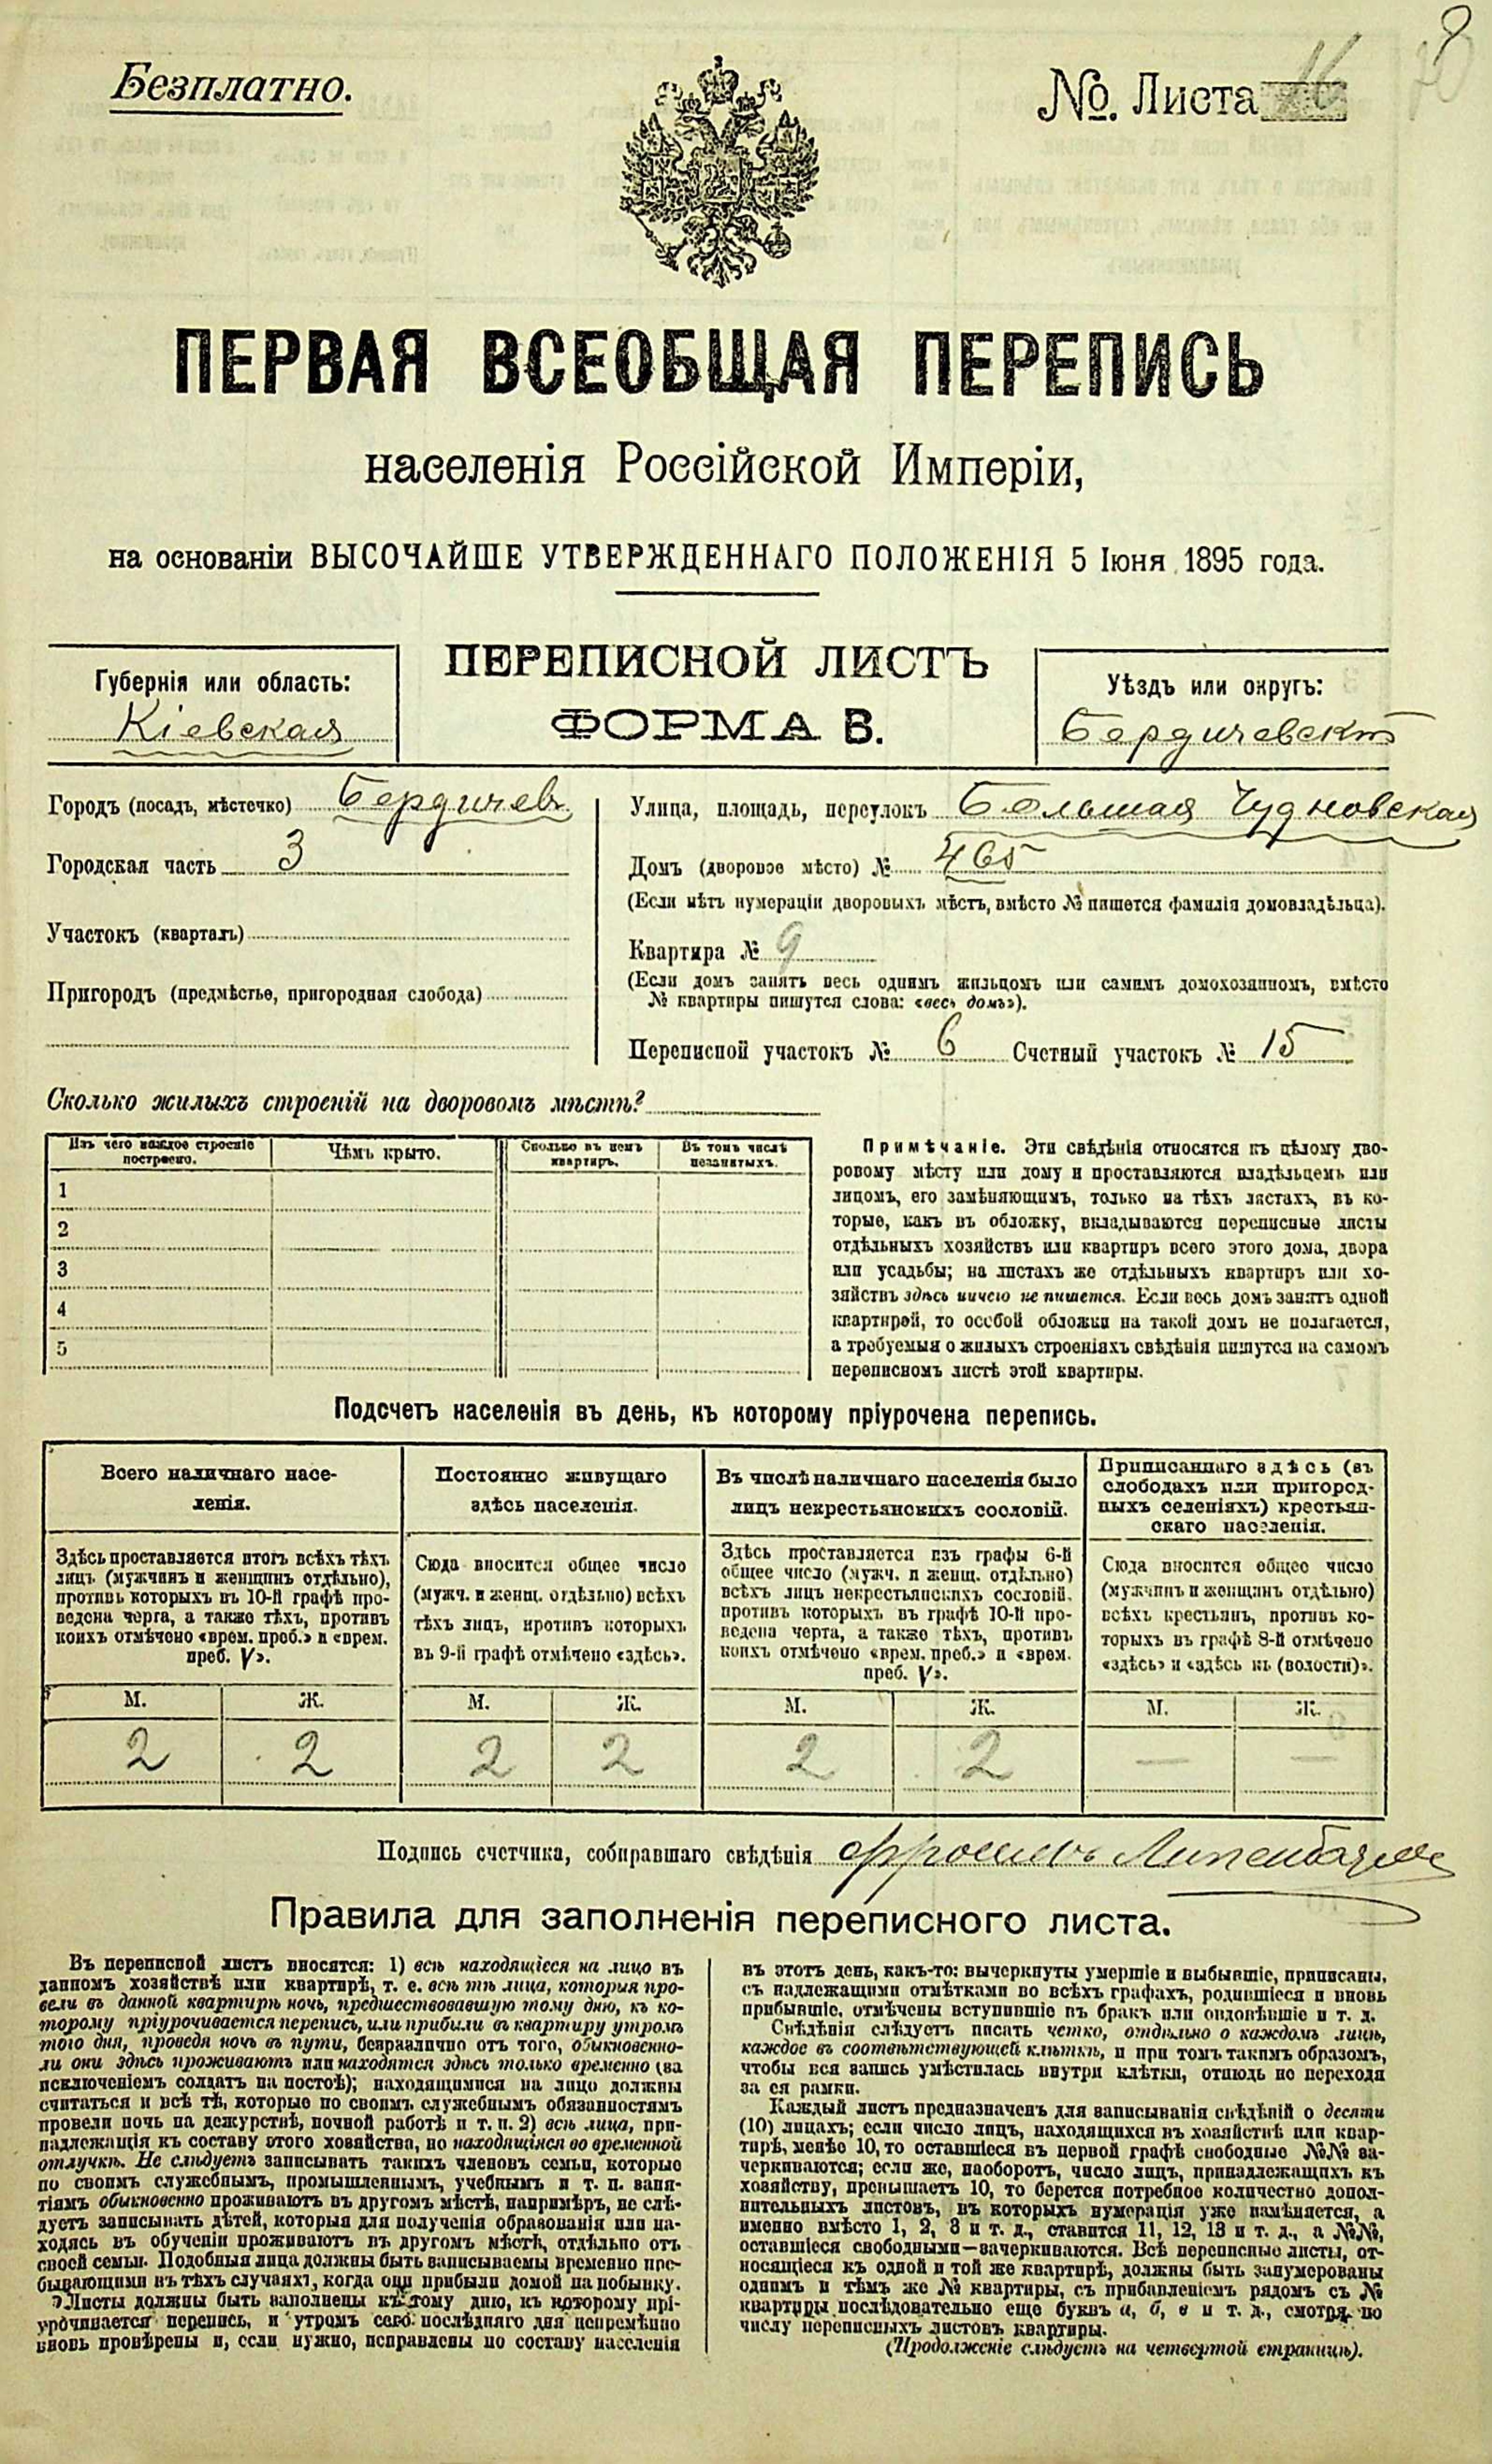 Безплатно.
№. Листа 16
ПЕРВАЯ ВСЕОБЩАЯ ПЕРЕПИСЬ
населенія Россійской Имперіи,
на основаніи ВЫСОЧАЙШЕ УТВЕРЖДЕННАГО ПОЛОЖЕНІЯ 5 Іюня 1895 года.
ПЕРЕПИСНОЙ ЛИСТЪ
ФОРМА В.
Губернія или область:
Кіевская
Уѣздъ или округъ:
Бердичевскій
Городъ (посадъ, мѣстечко) Бердичевъ
Городская часть 3
Участокъ (кварталъ)
Пригородъ (предмѣстье, пригородная слобода)
Улица, площадь, переулокъ Большая Чудновская
Домъ (дворовое мѣсто) № 465
(Если нѣтъ нумераціи дворовыхъ мѣстъ, вмѣсто № пишется фамилія домовладѣльца).
Квартира № 9
(Если домъ занятъ весь однимъ жильцомъ или самимъ домохозяиномъ, вмѣсто
№ квартиры пишутся слова: «весь домъ»).
Переписной участокъ № 6 Счетный участокъ № 15
Сколько жилыхъ строеній на дворовомъ мѣстѣ?
Изъ чего каждое строеніе
построено.
Чѣмъ крыто.
Сколько въ немъ
квартиръ.
Въ томъ числѣ
незанятыхъ.
1
2
3
4
5
Примѣчаніе. Эти свѣдѣнія относятся къ цѣлому дво-
ровому мѣсту или дому и проставляются владѣльцемъ или
лицомъ, его замѣняющимъ, только на тѣхъ листахъ, въ ко-
торые, какъ въ обложку, вкладываются переписные листы
отдѣльныхъ хозяйствъ или квартиръ всего этого дома, двора
или усадьбы; на листахъ же отдѣльныхъ квартиръ или хо-
зяйствъ здѣсь ничего не пишется. Если весь домъ занятъ одной
квартирой, то особой обложки на такой домъ не полагается,
а требуемыя о жилыхъ строеніяхъ свѣдѣнія пишутся на самомъ
переписномъ листѣ этой квартиры.
Подсчетъ населенія въ день, къ которому пріурочена перепись.
Всего наличнаго насе-
ленія.
Здѣсь проставляется итогъ всѣхъ тѣхъ
лицъ (мужчинъ и женщинъ отдѣльно),
противъ которыхъ въ 10-й графѣ про-
ведена черта, а также тѣхъ, противъ
коихъ отмѣчено «врем. преб.» и «врем.
преб. V».
М. Ж.
2 2
Постоянно живущаго
здѣсь населенія.
Сюда вносится общее число
(мужч. и женщ. отдѣльно) всѣхъ
тѣхъ лицъ, противъ которыхъ
въ 9-й графѣ отмѣчено «здѣсь».
М. Ж.
2 2
Въ числѣ наличнаго населенія было
лицъ некрестьянскихъ сословій.
Здѣсь проставляется изъ графы 6-й
общее число (мужч. и женщ. отдѣльно)
всѣхъ лицъ некрестьянскихъ сословій,
противъ которыхъ въ графѣ 10-й про-
ведена черта, а также тѣхъ, противъ
коихъ отмѣчено «врем. преб.» и «врем.
преб. V».
М. Ж.
2 2
Приписаннаго здѣсь (въ
слободахъ или пригород-
ныхъ селеніяхъ) крестьян-
скаго населенія.
Сюда вносится общее число
(мужчинъ и женщинъ отдѣльно)
всѣхъ крестьянъ, противъ ко-
торыхъ въ графѣ 8-й отмѣчено
«здѣсь» и «здѣсь къ (волости)».
М. Ж.
— —
Подпись счетчика, собиравшаго свѣдѣнія
Правила для заполненія переписного листа.
Въ переписной листъ вносятся: 1) всѣ находящіеся на лицо въ
данномъ хозяйствѣ или квартирѣ, т. е. всѣ тѣ лица, которыя про-
вели въ данной квартирѣ ночь, предшествовавшую тому дню, къ ко-
торому пріурочивается перепись, или прибыли въ квартиру утромъ
того дня, проведя ночь въ пути, безразлично отъ того, обыкновенно-
ли они здѣсь проживаютъ или находятся здѣсь только временно (за
исключеніемъ солдатъ на постоѣ); находящимися на лицо должны
считаться и всѣ тѣ, которые по своимъ служебнымъ обязанностямъ
провели ночь на дежурствѣ, ночной работѣ и т. п. 2) всѣ лица, при-
надлежащія къ составу этого хозяйства, но находящіяся во временной
отлучкѣ. Не слѣдуетъ записывать такихъ членовъ семьи, которые
по своимъ служебнымъ, промышленнымъ, учебнымъ и т. п. заня-
тіямъ обыкновенно проживаютъ въ другомъ мѣстѣ, напримѣръ, не слѣ-
дуетъ записывать дѣтей, которыя для полученія образованія или на-
ходясь въ обученіи проживаютъ въ другомъ мѣстѣ, отдѣльно отъ
своей семьи. Подобныя лица должны быть записываемы временно пре-
бывающими въ тѣхъ случаяхъ, когда они прибыли домой на побывку.
Листы должны быть заполнены къ тому дню, къ которому прі-
урочивается перепись, и утромъ сего послѣдняго дня непремѣнно
вновь провѣрены и, если нужно, исправлены по составу населенія
въ этотъ день, какъ-то: вычеркнуты умершіе и выбывшіе, приписаны,
съ надлежащими отмѣтками во всѣхъ графахъ, родившіеся и вновь
прибывшіе, отмѣчены вступившіе въ бракъ или овдовѣвшіе и т. д.
Свѣдѣнія слѣдуетъ писать четко, отдѣльно о каждомъ лицѣ,
каждое въ соотвѣтствующей клѣткѣ, и при томъ такимъ образомъ,
чтобы вся запись умѣстилась внутри клѣтки, отнюдь не переходя
за ея рамки.
Каждый листъ предназначенъ для записыванія свѣдѣній о десяти
(10) лицахъ; если число лицъ, находящихся въ хозяйствѣ или квар-
тирѣ, менѣе 10, то оставшіеся въ первой графѣ свободные №№ за-
черкиваются; если же, наоборотъ, число лицъ, принадлежащихъ къ
хозяйству, превышаетъ 10, то берется потребное количество допол-
нительныхъ листовъ, въ которыхъ нумерація уже измѣняется, а
именно вмѣсто 1, 2, 3 и т. д., ставится 11, 12, 13 и т. д., а №№,
оставшіеся свободными—зачеркиваются. Всѣ переписные листы, от-
носящіеся къ одной и той же квартирѣ, должны быть занумерованы
однимъ и тѣмъ же № квартиры, съ прибавленіемъ рядомъ съ №
квартиры послѣдовательно еще буквъ а, б, в и т. д., смотря по
числу переписныхъ листовъ квартиры.
(Продолженіе слѣдуетъ на четвертой страницѣ).